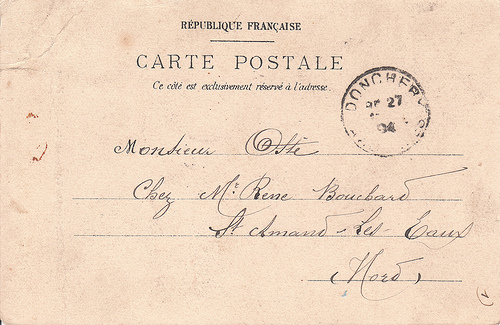 RÉPUBLIQUE FRANÇAISE
CARTE POSTALE
Ce côté est exclusivement réservé à l'adresse.
DONCHERY
27
04
Monsieur Osté
Chez Mr Rene Bouchard
St Amand-Les-Eaux
(Nord)